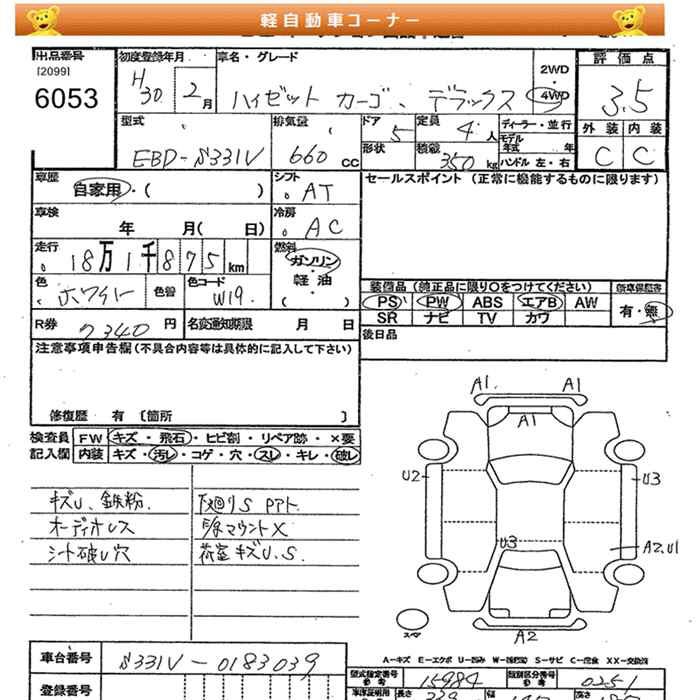 軽自動車コーナー
出品番号
[2099]
6053
初度登録年月
H30 2月
車名・グレード
ハイゼット カーゴ、 デラックス
2WD
4WD
評価点
3.5
外装 内装
C C
型式
EBD-S331V
排気量
660 cc
ドア 5
形状
定員 4人
積載 350 kg
ディーラー・並行
モデル年式 年
ハンドル 左・右
車歴
自家用・( )
シフト
AT
セールスポイント (正常に機能するものに限ります)
車検
年 月( 日)
冷房
AC
走行
18万1千875km
燃料
ガソリン・
軽油・
( )
装備品 (純正品に限り〇をつけてください)
PS PW ABS エアB AW
SR ナビ TV カワ
有・無
色
ホワイト
色替
色コード
W19
後日品
R券 7340円
名変通知期限 月 日
注意事項申告欄(不具合内容等は具体的に記入して下さい)
修復歴 有 〔箇所 〕
検査員
記入欄
FW キズ・飛石・ヒビ割・リペア跡・×要
内装 キズ・汚レ・コゲ・穴・スレ・キレ・破レ
キズU、鉄粉.
オーディオレス
シート破レ穴
下廻りS Pアト.
マウントX
荷室キズU.S.
A1 A1
A1
U2 U3
U3
A2.U1
A2
スペア
A-キズ E-エクボ U-凹ミ S-サビ C-腐食 XX-交換済
車台番号
S331V-0183039
登録番号
型式指定番号
15984
類別区分番号
0251
長さ
339
幅
高さ